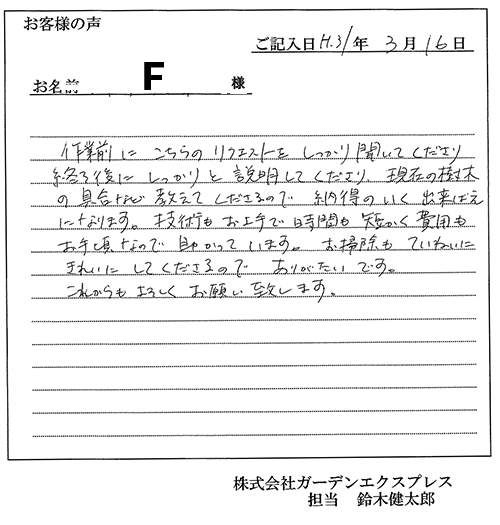 お客様の声
ご記入日 H.31年 3月16日
お名前 F 様
作業前に こちらの リクエストを しっかり 聞いてくださり
終了後に しっかりと 説明してくださり、現在の樹木
の 具合など 教えて くださるので 納得のいく 出来ばえ
になります。技術も お上手で 時間も 短かく 費用も
お手頃なので 助かって います。お掃除も ていねいに
きれいに してくださるので ありがたいです。
これからも よろしく お願い 致します。
株式会社ガーデンエクスプレス
担当 鈴木健太郎